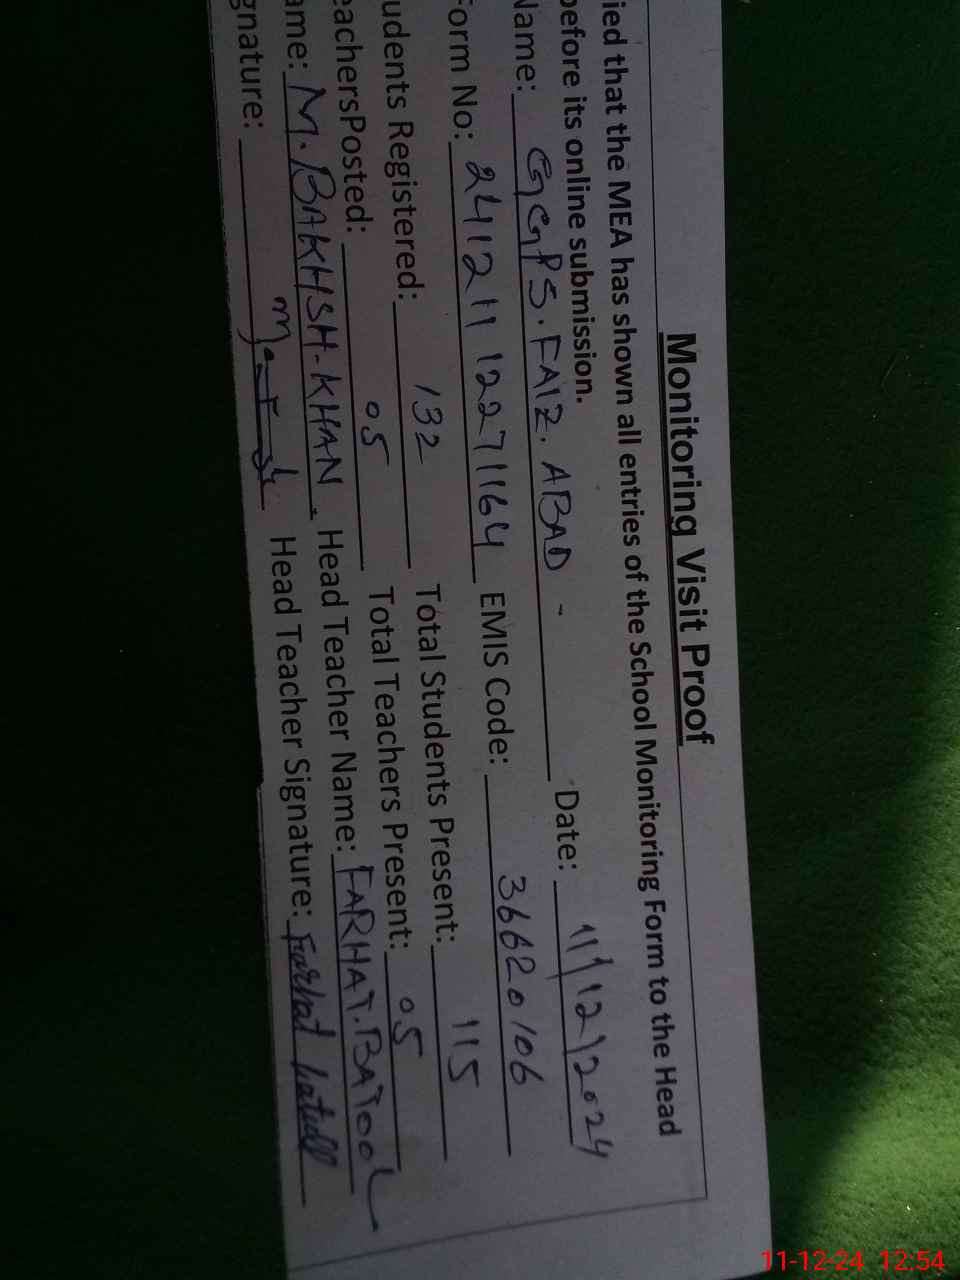 Monitoring Visit Proof
ied that the MEA has shown all entries of the School Monitoring Form to the Head
before its online submission.
Name: GGPS. FAIZ. ABAD - Date: 11/12/2024
Form No: 24121112271164 EMIS Code: 36620106
udents Registered: 132 Total Students Present: 115
eachersPosted: 05 Total Teachers Present: 05
ame: M. BAKHSH. KHAN. Head Teacher Name: FARHAT. BATOOL
gnature: Head Teacher Signature: Farhat batull
11-12-24 12:54